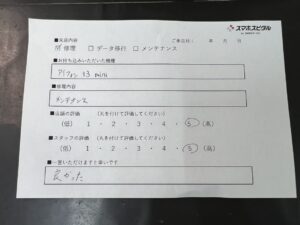 スマホスピタル
■来店内容 ご来店日： 年 月 日
☑修理 □データ移行 □メンテナンス
■お持ち込みいただいた機種
アイフォン 13 mini
■修理内容
メンテナンス
■店舗の評価 (丸を付けて評価してください)
(低) 1 ・ 2 ・ 3 ・ 4 ・ 5 (高)
■スタッフの評価 (丸を付けて評価してください)
(低) 1 ・ 2 ・ 3 ・ 4 ・ 5 (高)
■一言いただけますと幸いです
良かった